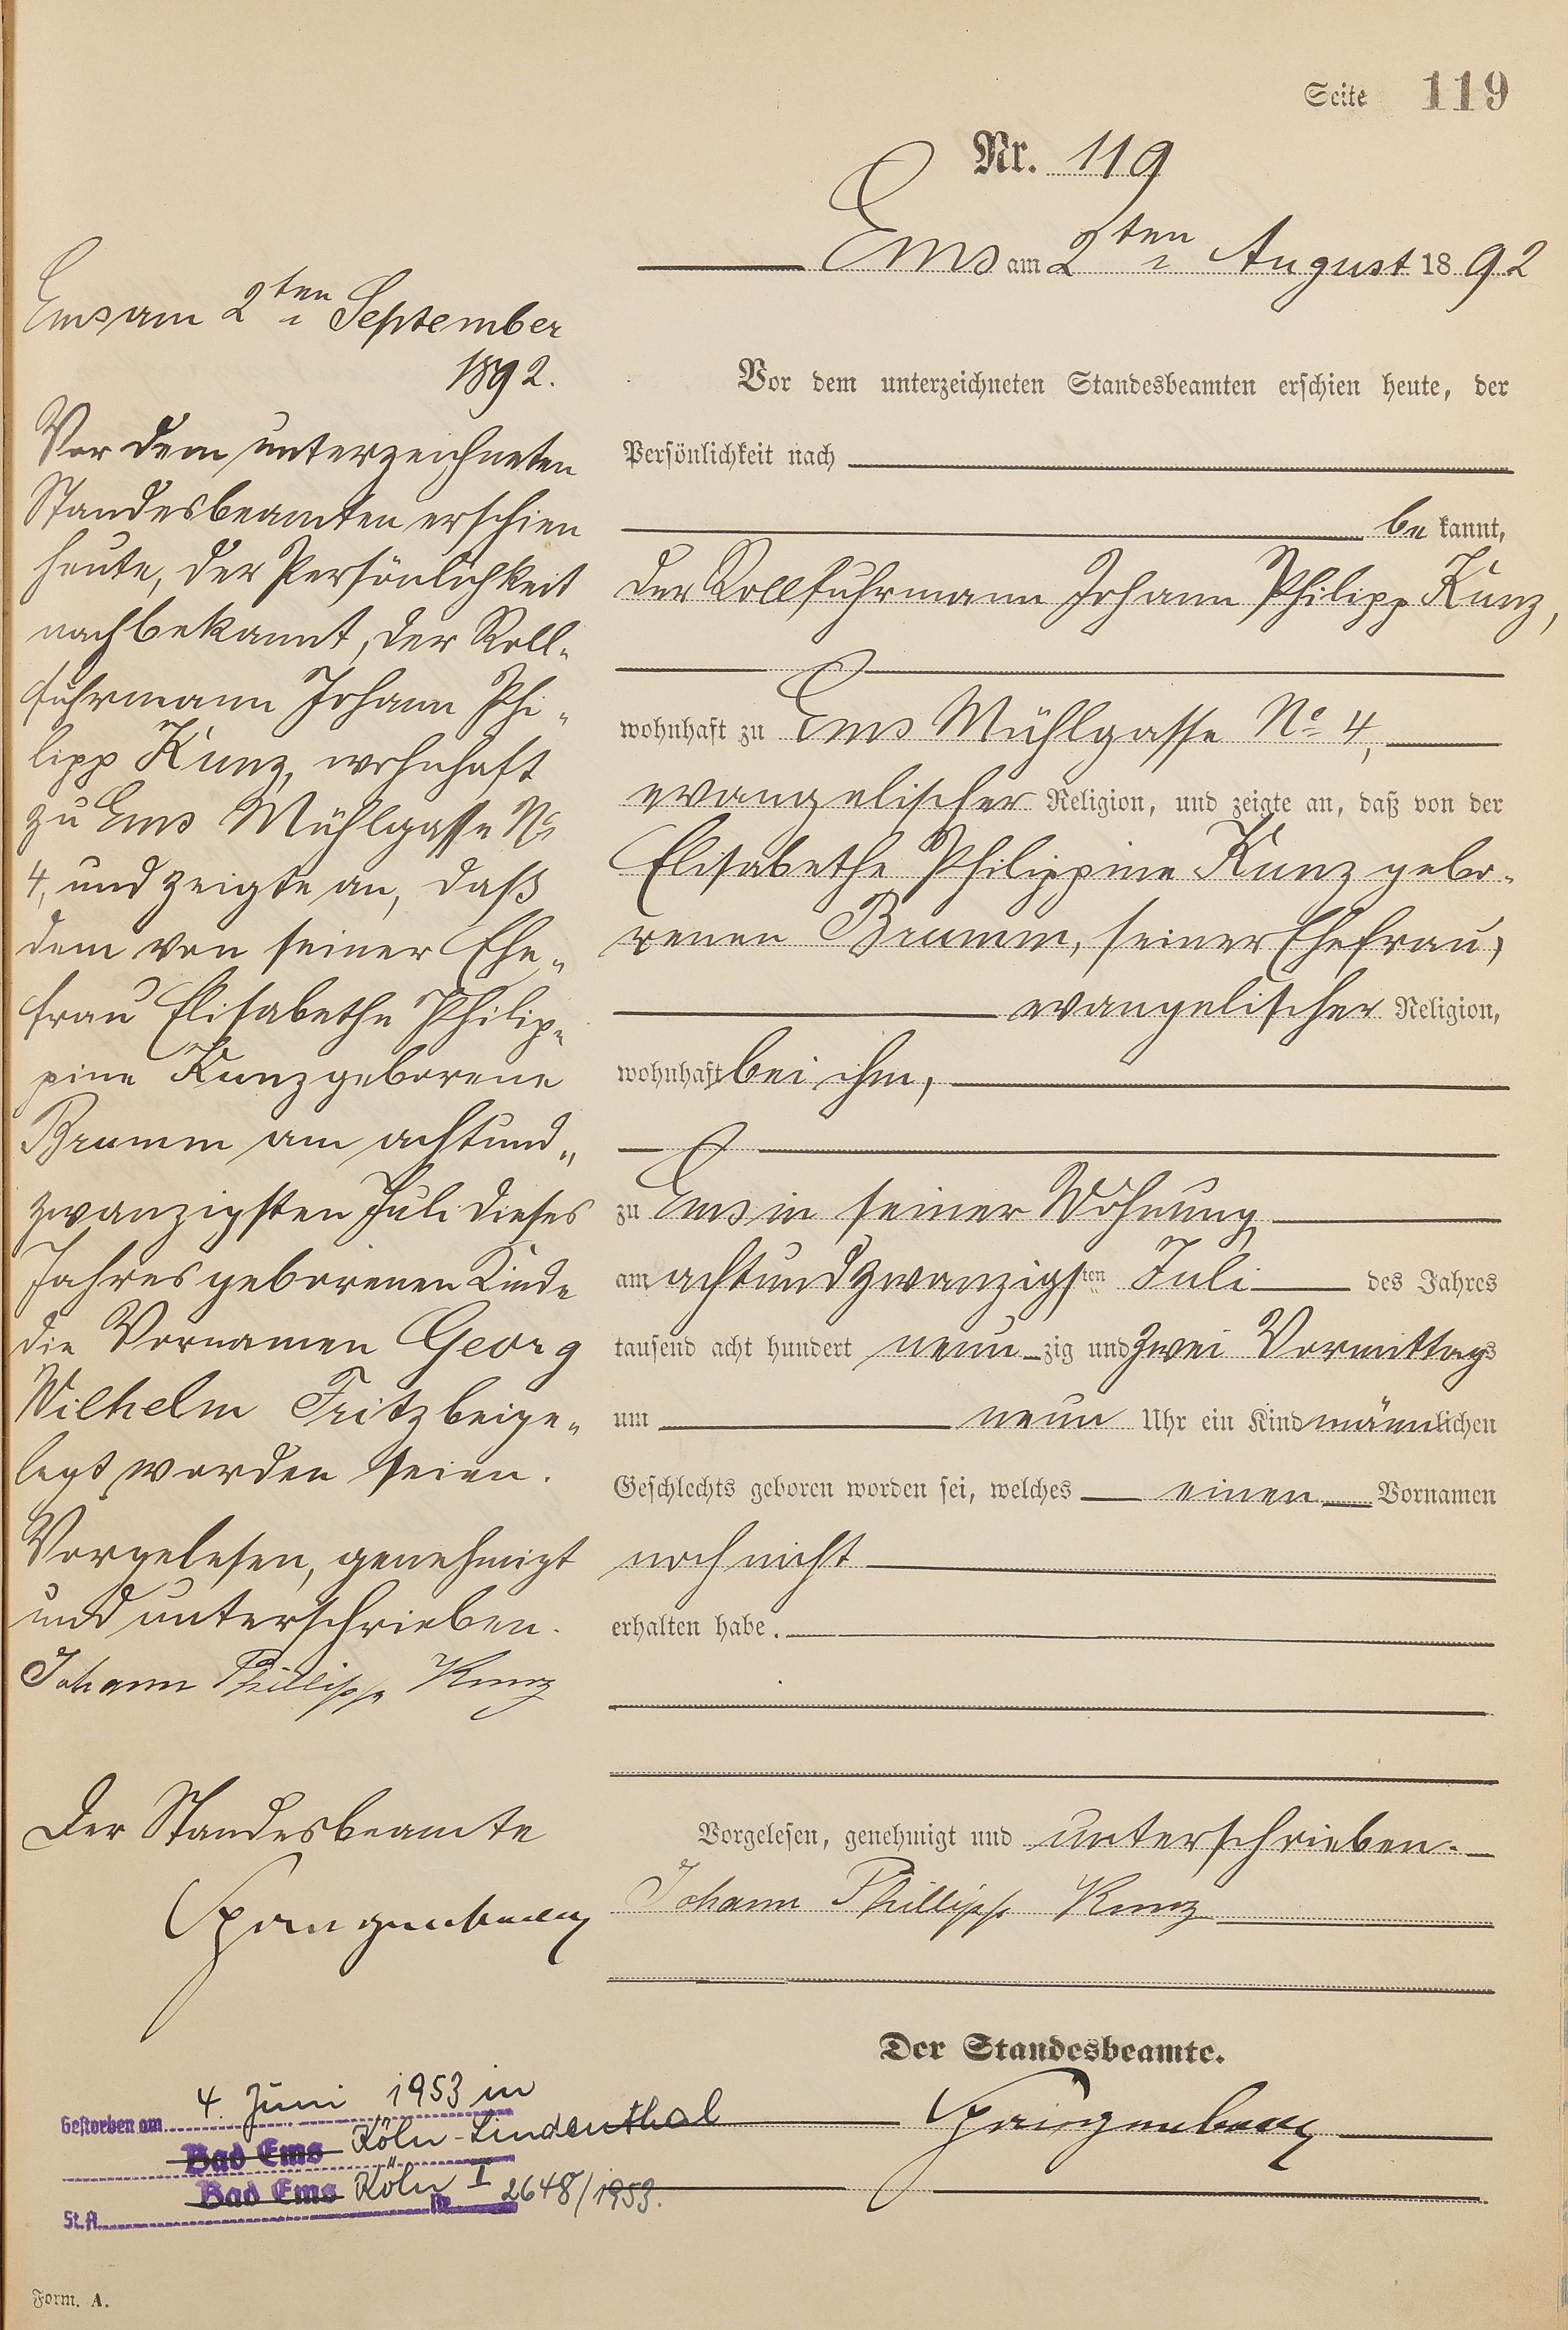 Seite 119
Nr. 119
Ems am 2ten August 1892
Vor dem unterzeichneten Standesbeamten erschien heute, der
Persönlichkeit nach
bekannt,
der Rollfuhrmann Johann Philipp Kunz,
wohnhaft zu Ems Mühlgasse No 4,
evangelischer Religion, und zeigte an, daß von der
Elisabethe Philippine Kunz gebo-
renen Bramm, seiner Ehefrau,
evangelischer Religion,
wohnhaft bei ihm,
zu Ems in seiner Wohnung
am achtundzwanzigsten Juli des Jahres
tausend acht hundert neunzig und zwei Vormittags
um neun Uhr ein Kind männlichen
Geschlechts geboren worden sei, welches einen Vornamen
noch nicht
erhalten habe.
Vorgelesen, genehmigt und unterschrieben.
Johann Phillipp Kunz
Der Standesbeamte.
Spangenberg
Ems am 2ten September
1892.
Vor dem unterzeichneten
Standesbeamten erschien
heute, der Persönlichkeit
nach bekannt, der Roll-
fuhrmann Johann Phi-
lipp Kunz, wohnhaft
zu Ems Mühlgasse No
4, und zeigte an, daß
dem von seiner Ehe-
frau Elisabethe Philip-
pine Kunz geborene
Bramm am achtund-
zwanzigsten Juli dieses
Jahres geborenen Kinde
die Vornamen Georg
Wilhelm Fritz beige-
legt worden seien.
Vorgelesen, genehmigt
und unterschrieben.
Johann Phillipp Kunz
Der Standesbeamte
Spangenberg
Gestorben am 4. Juni 1953 in
Bad Ems Köln-Lindenthal
Bad Ems Köln I
St.A. Nr. 2648/1953.
Form. A.